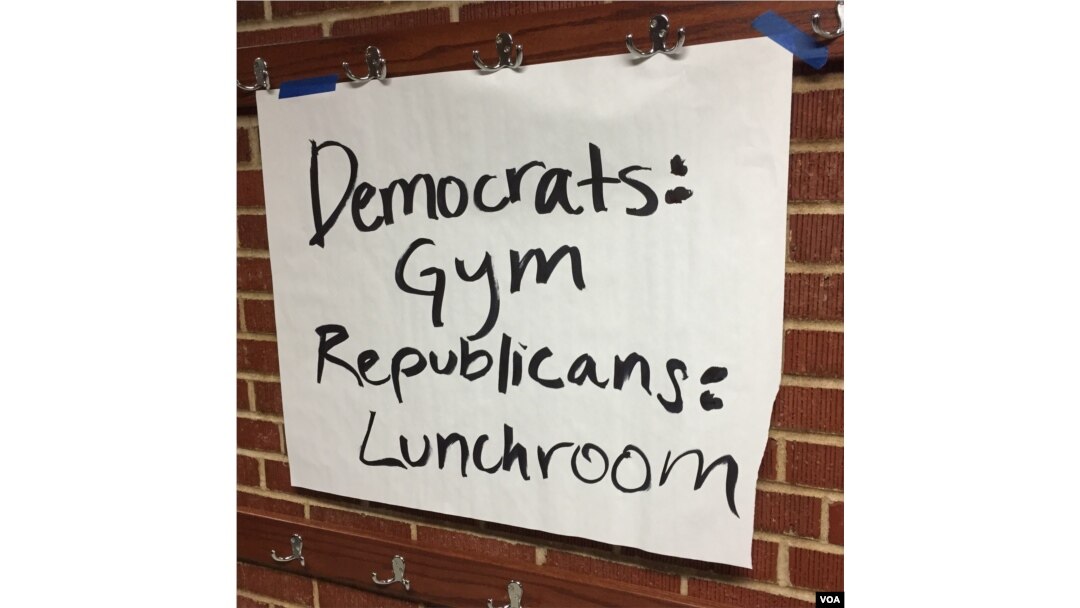 Democrats:
Gym
Republicans:
Lunchroom
VOA